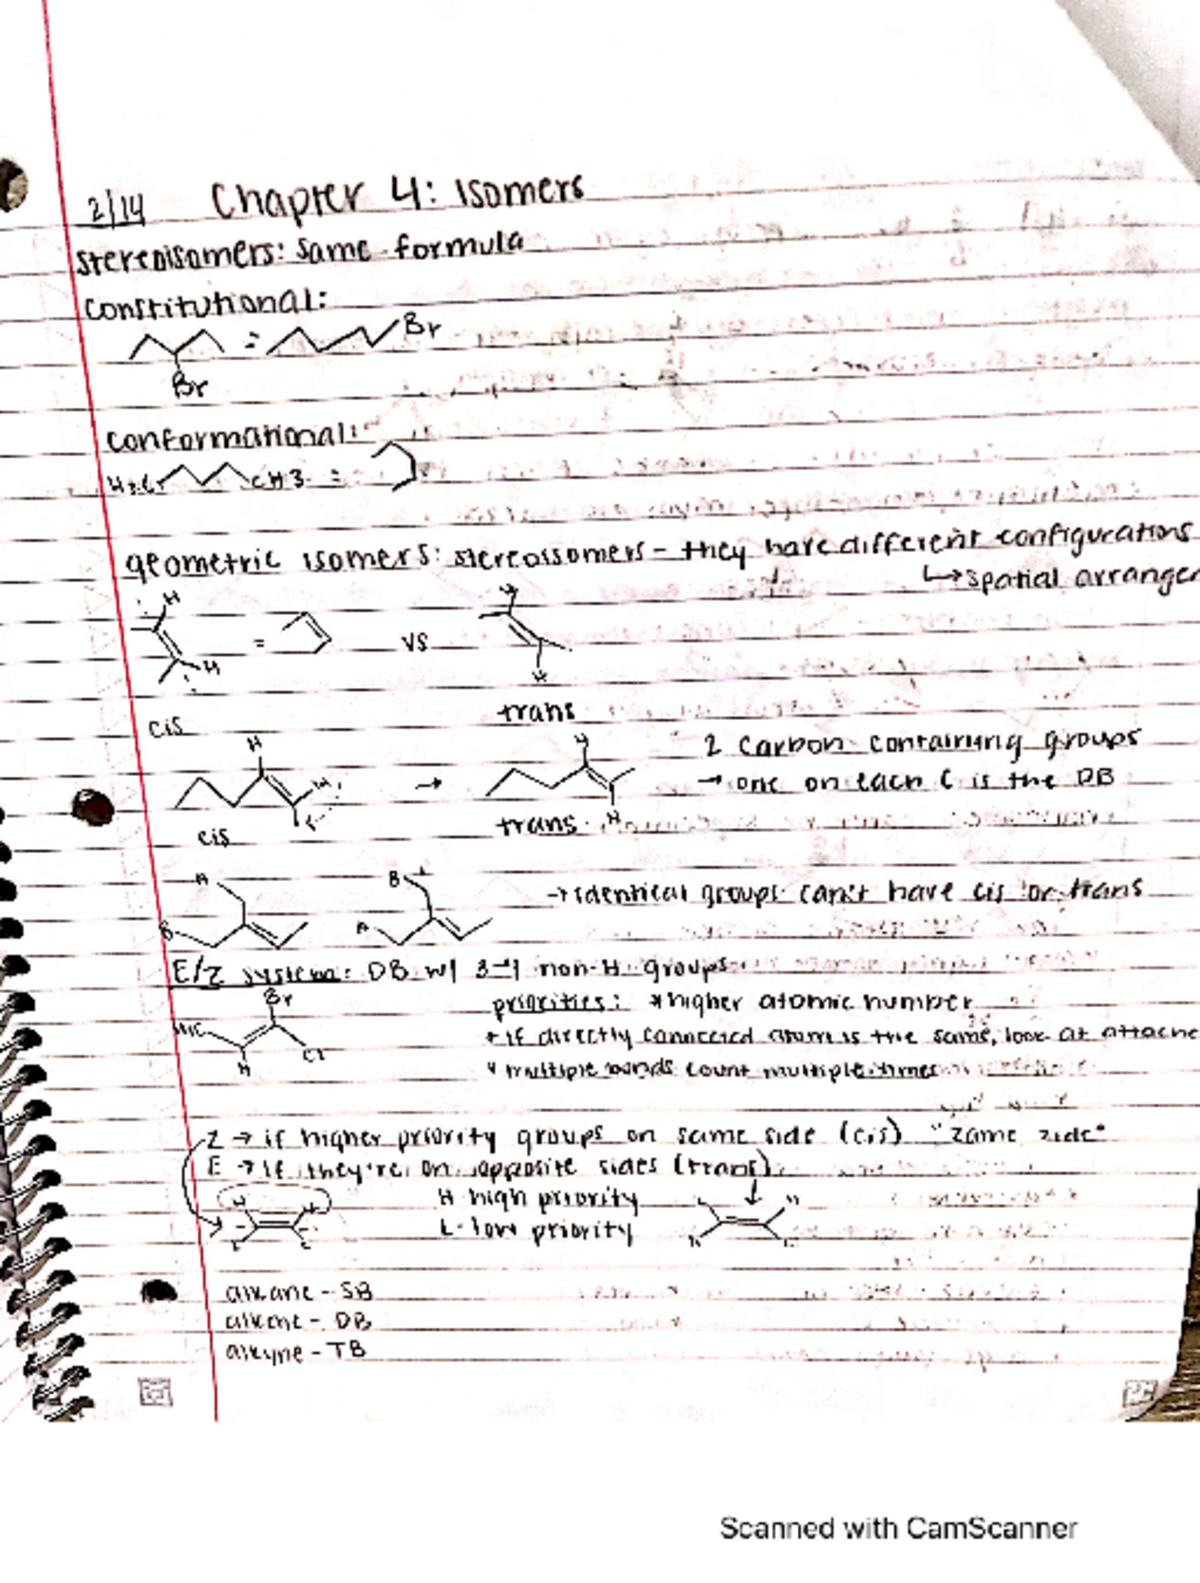 2/14 Chapter 4: Isomers
stereoisomers: same formula
constitutional:
= Br
Br
conformational:
H3C CH3 =
geometric isomers: stereoisomers - they have different configurations
↳ spatial arrangem
H H
= vs
H H
cis trans
H H 2 carbon containing groups
H → → one on each C is the DB
cis trans H
A B → identical groups can't have cis or trans
B A
E/Z system: DB w/ 3-4 non-H groups
Br priorities: *higher atomic number
H3C *if directly connected atom is the same, look at attache
H Cl *multiple bonds count multiple times
Z → if higher priority groups on same side (cis) "zame zide"
E → if they're on opposite sides (trans)
H H H - high priority L H
L L L - low priority H L
alkane - SB
alkene - DB
alkyne - TB
Scanned with CamScanner